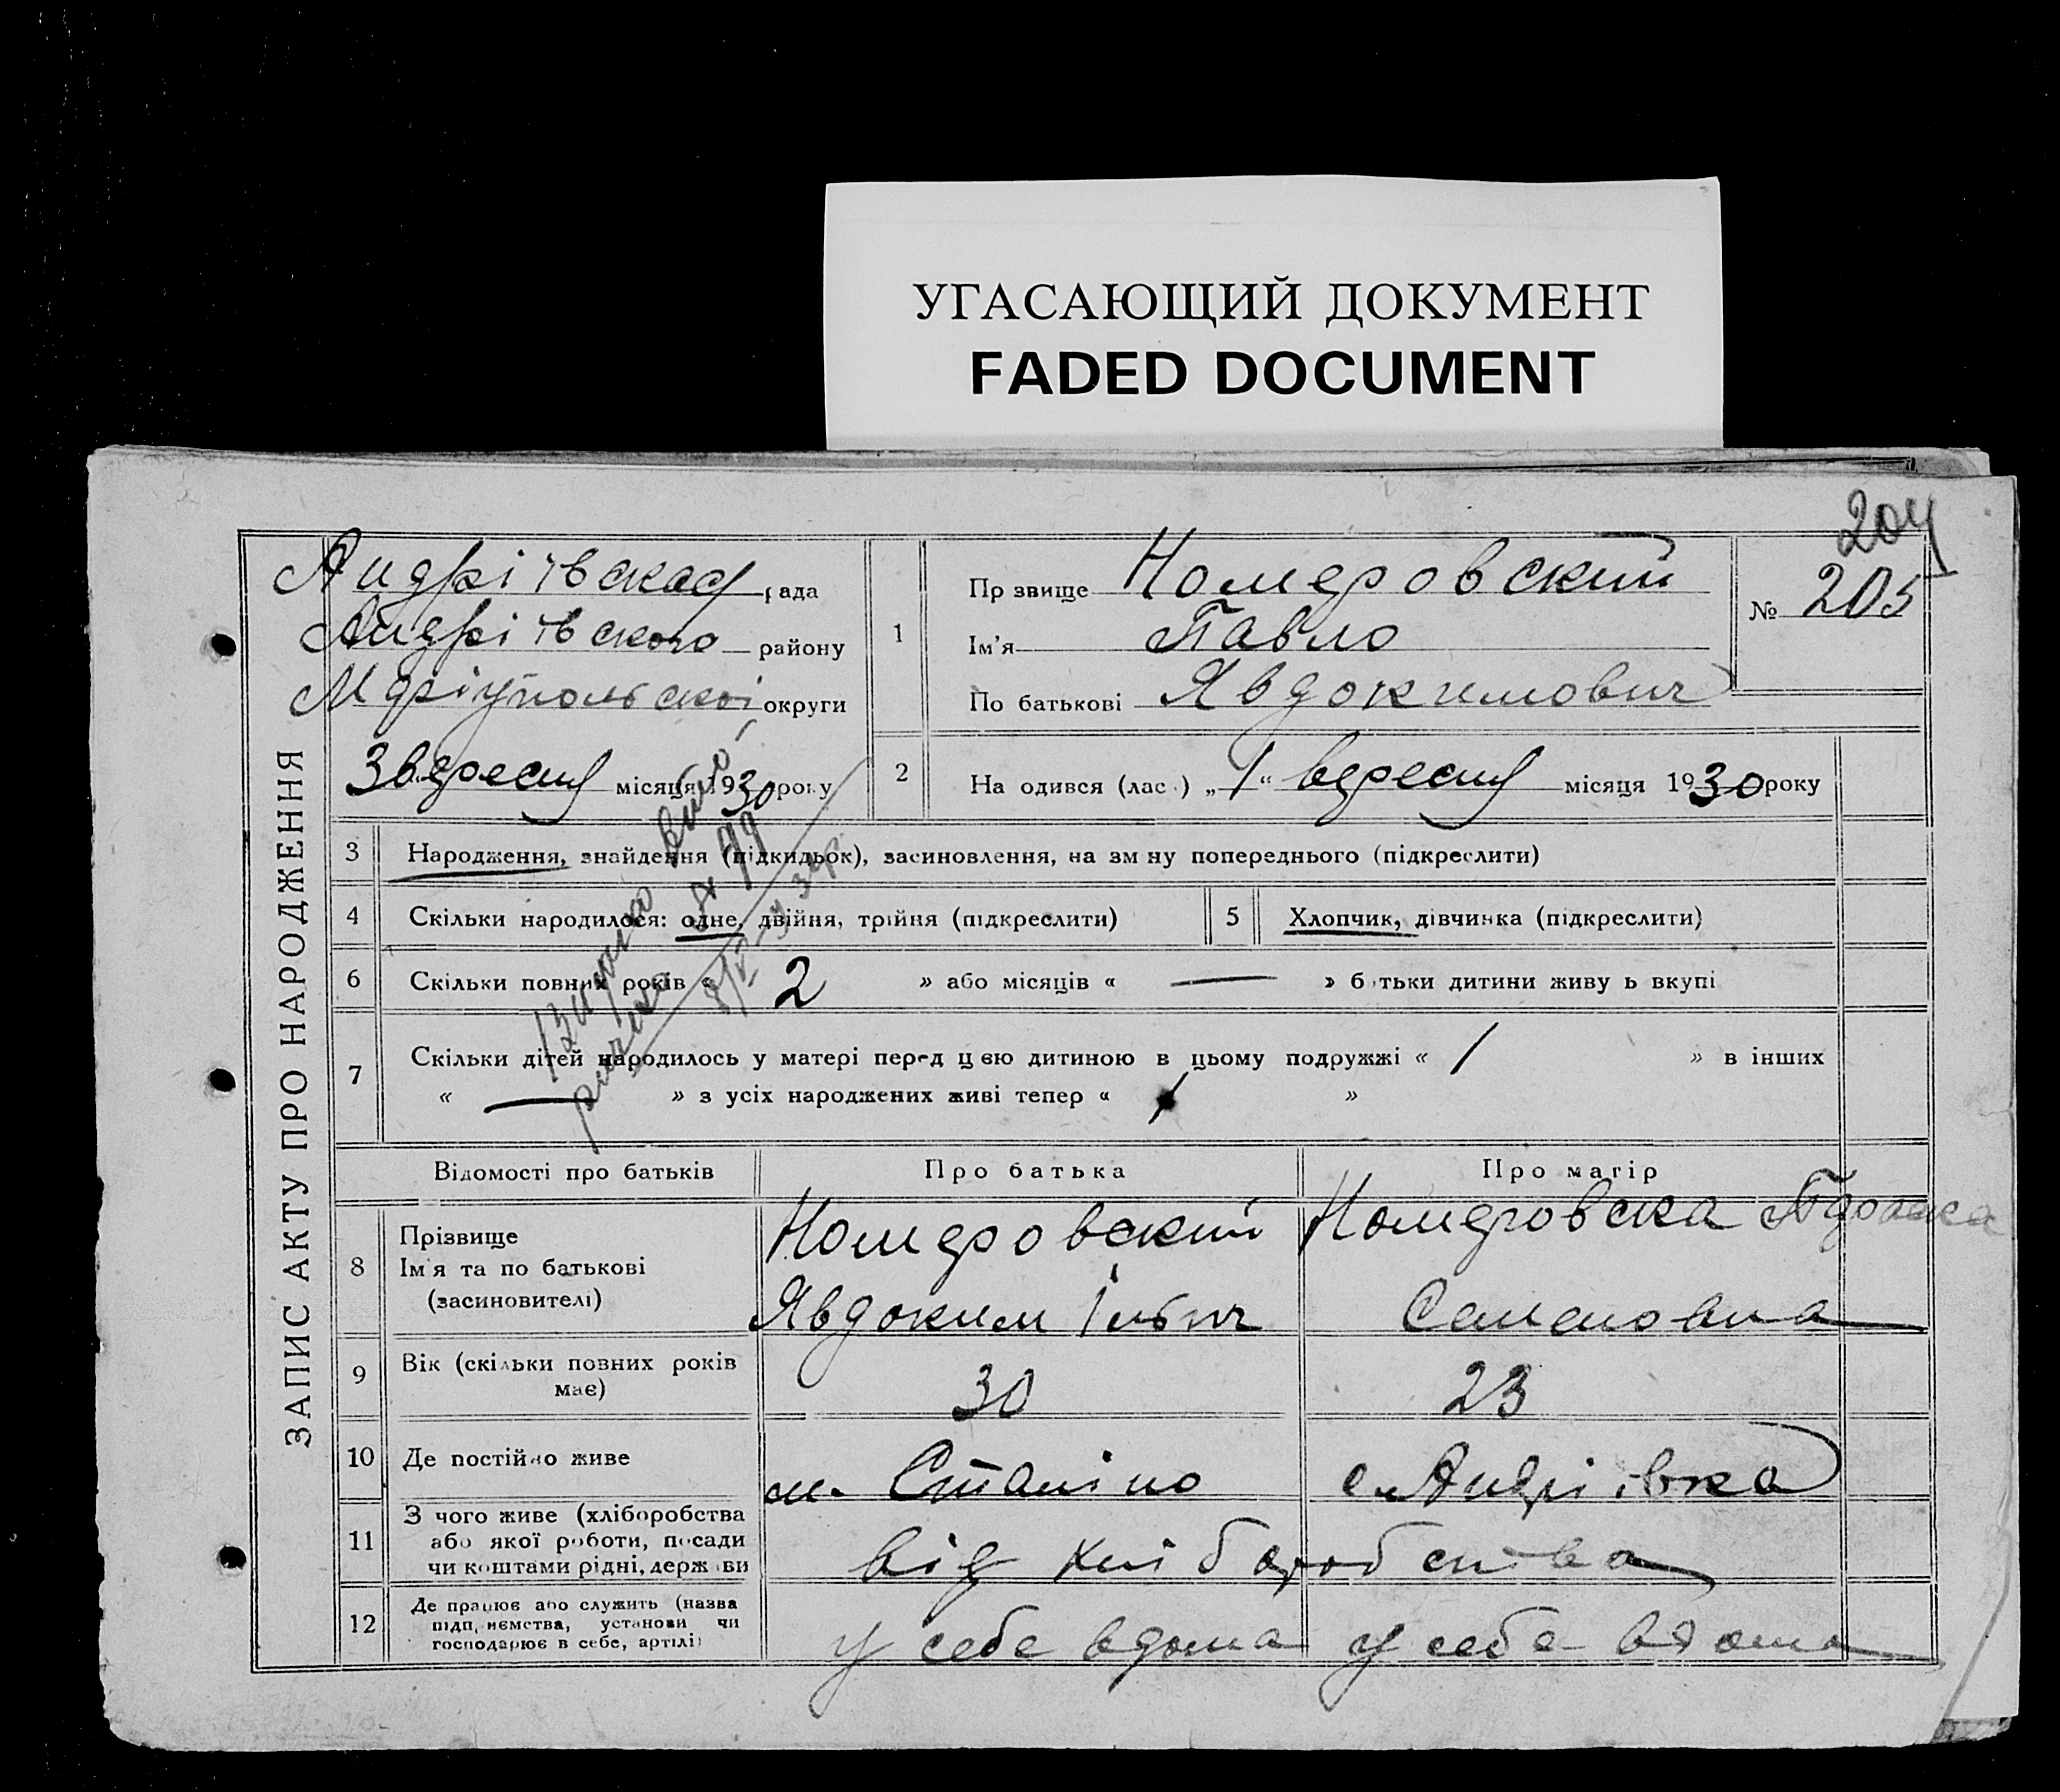 УГАСАЮЩИЙ ДОКУМЕНТ
FADED DOCUMENT
204
ЗАПИС АКТУ ПРО НАРОДЖЕННЯ
Андріївская рада
Андріївского району
Маріупольскої округи
3 вересня місяця 1930 року
1
Пр звище Номеровский
Ім'я Павло
По батькові Явдокимович
№ 205
2
На одився (лас ) „1“ вересня місяця 1930 року
3 Народження, знайдення (підкидьок), засиновлення, на зм ну попереднього (підкреслити)
4 Скільки народилося: одне, двійня, трійня (підкреслити)
5 Хлопчик, дівчинка (підкреслити)
6 Скільки повних років « 2 » або місяців « — » б тьки дитини живу ь вкупі
7 Скільки дітей народилось у матері перед ц ею дитиною в цьому подружжі « 1 » в інших
« — » з усіх народжених живі тепер « 1 »
Відомості про батьків Про батька Про матір
8 Прізвище
Ім'я та по батькові
(засиновителі)
Номеровский
Явдоким Ільич
Номеровска
Семеновна
9 Вік (скільки повних років
має)
30 23
10 Де постійно живе м. Сталіно с. Андріївка
11 З чого живе (хліборобства
або якої роботи, посади
чи коштами рідні, держ ви
від хліборобства
12 Де працює або служить (назва
підп иємства, установи чи
господарює в себе, артілі)
у себе вдома у себе вдома